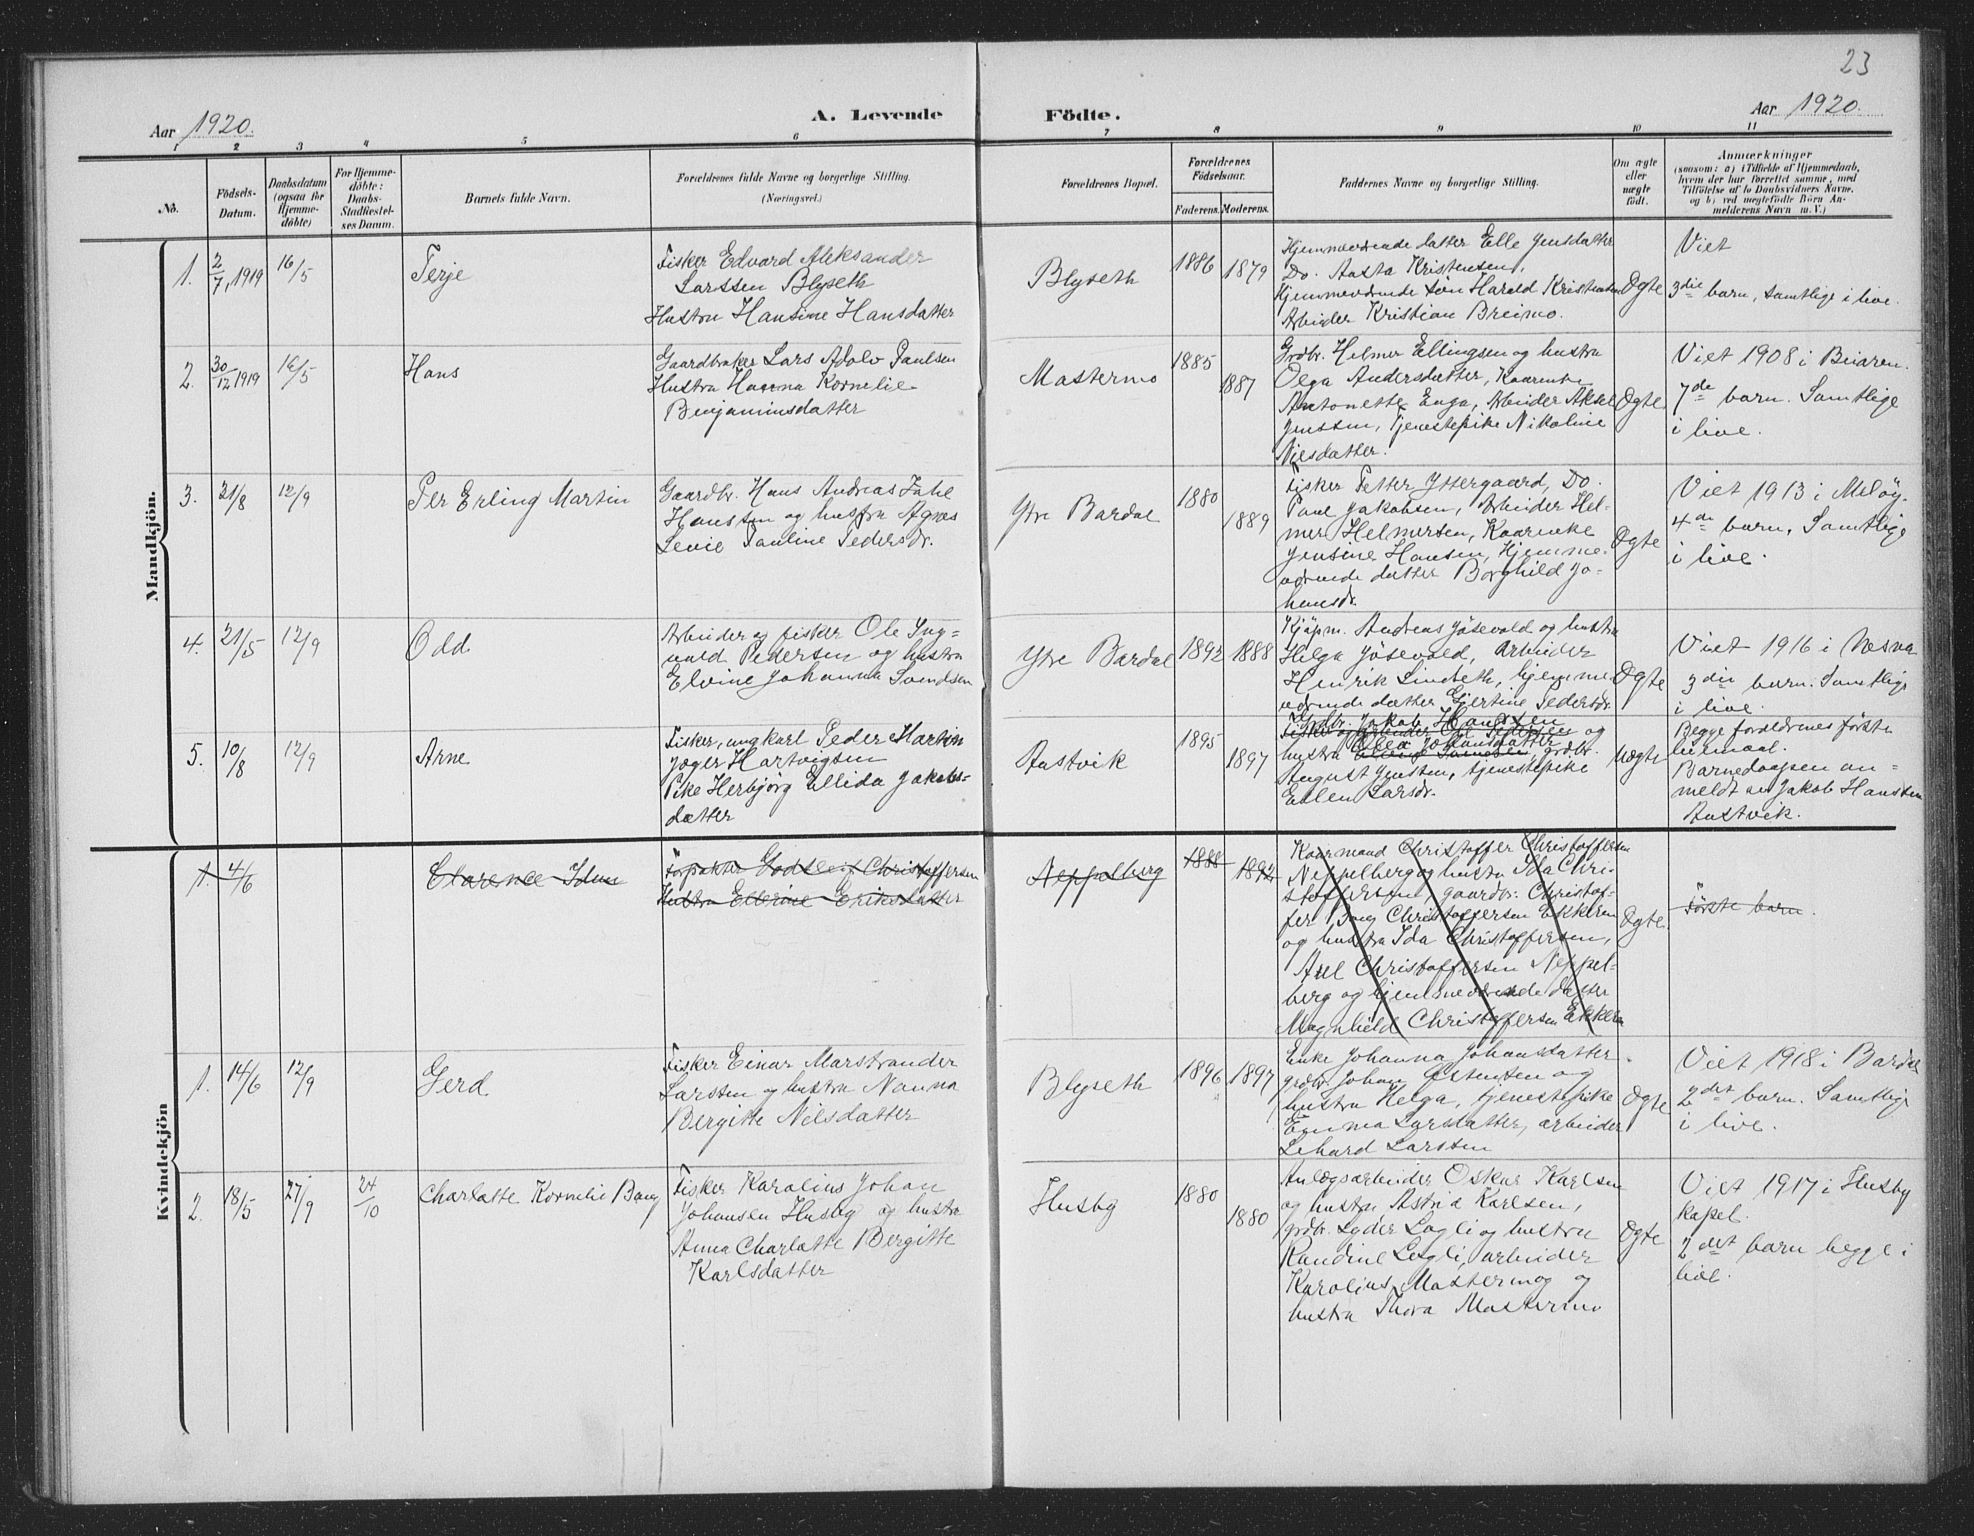 23
Aar 1920.
A. Levende
Födte.
Aar 1920
1 2 3 4 5 6 7 8 9 10 11
No.
Födsels-
Datum.
Daabsdatum
(ogsaa for
Hjemme-
döbte)
For Hjemme-
döbte:
Daabs-
Stadfæstel-
ses Datum.
Barnets fulde Navn.
Forældrenes fulde Navne og borgerlige Stilling.
(Næringsvei.)
Forældrenes Bopæl.
Forældrenes
Födselsaar.
Faderens.
Moderens.
Faddernes Navne og borgerlige Stilling.
Om ægte
eller
uægte
födt.
Anmærkninger
(saasom: a) i Tilfælde af Hjemmedaab,
hvem der har forrettet samme, med
Tilföielse af to Daabsvidners Navne.
og b) ved uægtefödte Börn An-
melderens Navn m. V.)
Mandkjön.
1. 2/7, 1919 16/5
Terje
Fisker Edvard Aleksander
Larssen Blyseth
Hustru Hansine Hansdatter
Blyseth
1886
1879
Hjemmeværende datter Elle Jensdatter
Do. Aasta Kristensen,
Hjemmeværende søn Harald Kristensen
Arbeider Kristian Breimo.
Ægte
Viet
3die barn, samtlige i live.
2. 30/12 1919 16/5
Hans
Gaardbruker Lars Adolv Paulsen
Hustru Hanna Kornelie
Benjaminsdatter
Mastermo
1885
1887
Grdbr. Helmer Ellingsen og hustru
Olga Andersdatter, Kaarenke
Antonette Enga, Arbeider Aksel
Jenssen, Tjenestepike Nikoline
Nilsdatter.
Ægte
Viet 1908 i Beiaren.
7de barn. Samtlige
i live.
3. 21/8 12/9
Per Erling Martin
Gaardbr. Hans Andreas
Hanssen og hustru Agnes
Levie Pauline Pedersdr.
Ytre Bardal
1880
1889
Fisker Petter Yttergaard, Do.
Paul Jakobsen, Arbeider Hel-
mer Helmersen, Kaarenke
Jensine Hansen, Hjemme-
værende datter Borghild Jo-
hansdr.
Ægte
Viet 1913 i Meløy.
4de barn, Samtlige
i live.
4. 21/5 12/9
Odd
Arbeider og fisker Ole Ing-
vald Pedersen og hustru
Elvine Johanna Svendsen
Ytre Bardal
1892
1888
Kjøpm. Andreas Jøsevold og hustru
Helga Jøsevold, Arbeider
Henrik Lindseth, hjemme-
værende datter Gjertine Pedersdr.
Ægte
Viet 1916 i Nesna
3die barn. Samtlige
i live.
5. 10/8 12/9
Arne
Fisker, ungkarl Peder Martin
Jæger Hartvigsen
Pike Herbjørg Ellida Jakobs-
datter
Aastvik
1895
1897
Grdbr. Jakob Hanssen
Fisker og Arbeider Ole Pedersen og
Ellen Johansdatter
hustru grdbr.
August Jenssen, tjenestepike
Ellen Larsdr.
Uægte
Begge forældrenes første
leiermaal.
Barnedaapen an-
meldt av Jakob Hanssen
Aastvik.
Kvindekjön
1. 4/6
Clarence Idun
Forpakter Godsen Christoffersen
Hustru Ellerine Eriksdatter
Neppelberg
1888
1892
Kaarmand Christoffer Christoffersen
Neppelberg og hustru Ida Chri-
stoffersen, gaardbr. Christof-
fer Christoffersen Ekkeren
og hustru Ida Christoffersen,
Axel Christoffersen Neppel-
berg og hjemmeværende datter
Magnhild Christoffersen Ekkeren
Ægte
Første barn.
1. 14/6 12/9
Gerd
Fisker Einar Marstrander
Larssen og hustru Nanna
Bergitte Nilsdatter
Blyseth
1896
1897
Enke Johanna Johansdatter
grdbr. Johan Østensen og
hustru Helga, tjenestepike
Emma Larsdatter, arbeider
Lehard Larssen
Ægte
Viet 1918 i Bardal
2det barn. Samtlige
i live.
2. 18/5 27/9 24/10
Charlatte Kornelie Bang
Fisker Karolius Johan
Johansen Husby og hustru
Anna Charlatte Bergitte
Karlsdatter
Husby
1880
1880
Anlægsarbeider Oskar Karlsen
og hustru Astrid Karlsen,
grdbr. Lyder Lagli og hustru
Randine Lagli, arbeider
Karolius Mastermo og
hustru Thora Mastermo
Ægte
Viet 1917 i Husby
kapel.
2det barn begge i
live.